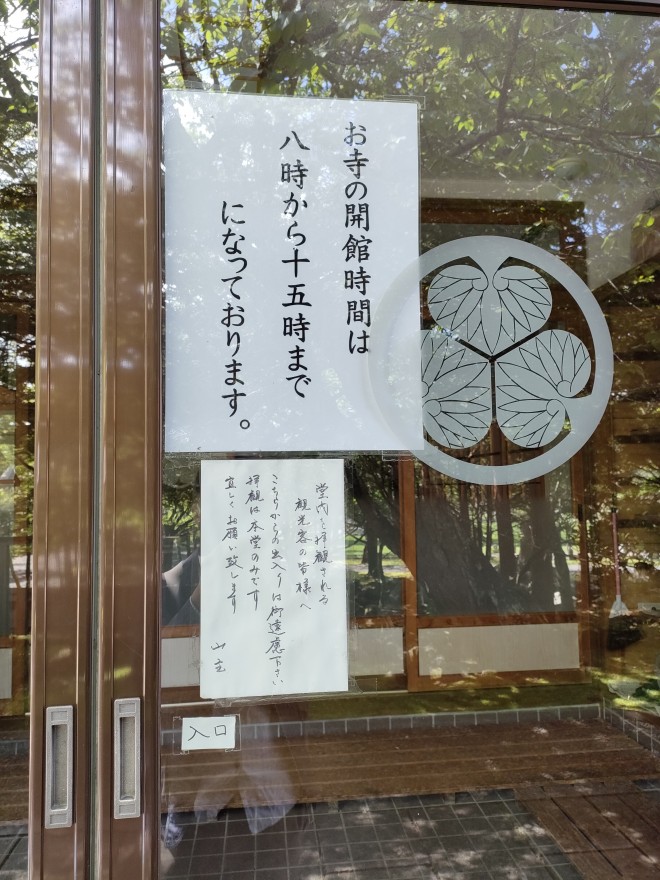 お寺の開館時間は
八時から十五時まで
になっております。
堂内を拝観される
観光客の皆様へ
こちらからの出入りは御遠慮下さい
拝観は本堂のみです
宜しくお願い致します
山主
入口